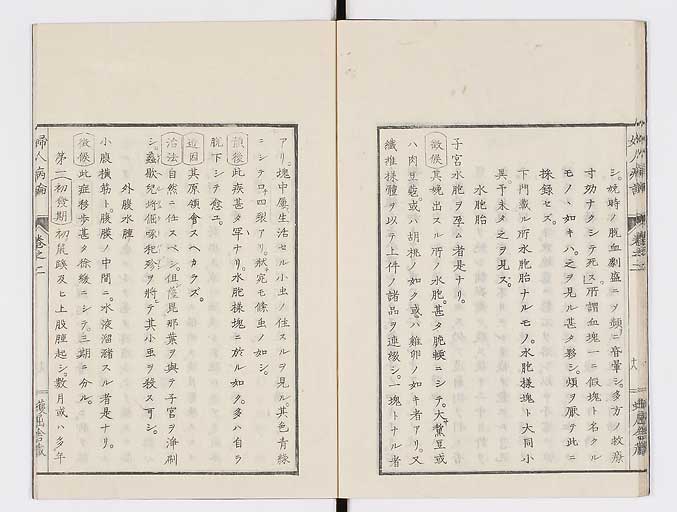 シ。娩時ノ脱血劇盛ニシテ頻ニ昏暈シ。多方ノ救療
寸功ナクシテ死ス」所謂血塊一ニ似塊ト名クル
モノヽ如キハ。之ヲ見ル甚タ夥シ。煩ヲ厭テ此ニ
採録セズ。
下門戴ル所水胞胎ナルモノ。水胞様塊ト大同小
異予未タ之ヲ見ズ。
水胞胎
子宮水胞ヲ孕ム者是ナリ。
徴候 其娩出スル所ノ水胞。甚タ脆軟ニシテ。大サ蚕豆或
ハ肉豆蔲。或ハ胡桃ノ如ク。或ハ雞卵ノ如キ者アリ。又
纖維様體ヲ以テ上件ノ諸品ヲ連綴シ。一塊トナル者
アリ。塊中屢生活セル小虫ノ住スルヲ見ル。其色青緑
ニシテ口ニ四裂アリ。狀宛モ條虫ノ如シ。
預後 此疾甚タ罕ナリ。水胞様塊ニ於ル如ク。多ハ自ラ
脱下シテ愈ユ。
遠因 其原領會スヘカラズ。
治法 自然ニ仕スベシ。但葠昆那葉ヲ與テ子宮ヲ淨刷
シ。
外腹水腫
小腹橫筋ト腹膜ノ中間ニ。水液溜瀦スル者是ナリ。
徴候 此症移歩甚タ徐緩ニシテ。三期ニ分ル。
第一初發期 初起跌及ヒ上股腫起シ。數月或ハ多年
婦人病論
巻之二